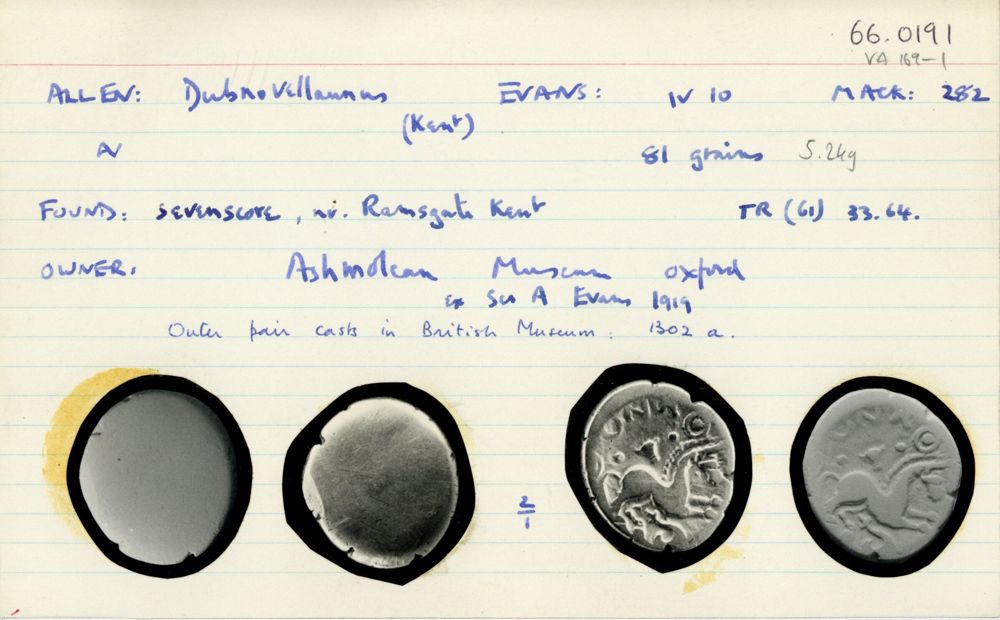 66.0191
VA 169-1
ALLEN: Dubnovellaunus EVANS: IV 10 MACK: 282
(Kent)
AV 81 grains 5.24g
FOUND: Sevenscore, nr. Ramsgate Kent TR (61) 33.64.
OWNER: Ashmolean Museum Oxford
ex Sir A Evans 1919
Outer pair casts in British Museum: 1302 a.
2
1